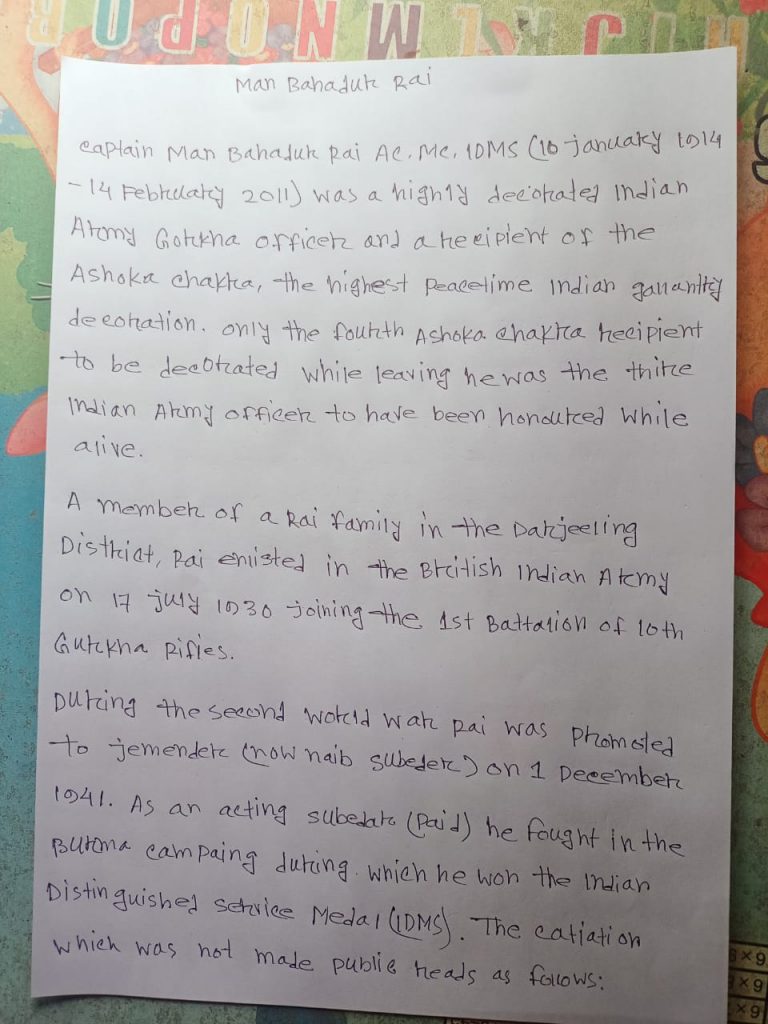 HIJKLMNOPQR
Man Bahadur Rai
captain Man Bahadur Rai AC. MC. IDMS (10 january 1914
- 14 February 2011) was a highly decorated Indian
Army Gorkha officer and a recipient of the
Ashoka chakra, the highest peacetime Indian gallantry
decoration. only the fourth Ashoka chakra recipient
to be decorated while leaving he was the thire
Indian Army officer to have been honoured while
alive.
A member of a Rai family in the Darjeeling
District, Rai enlisted in the British Indian Army
on 17 july 1930 joining the 1st Battalion of 10th
Gurkha Rifles.
During the second world war Rai was promoted
to jemender (now naib subeder) on 1 December
1941. As an acting subedar (paid) he fought in the
Burma campaing during. which he won the Indian
Distinguished service Medal (IDMS). The catiation
which was not made public reads as follows:
3×9
3×9
×9